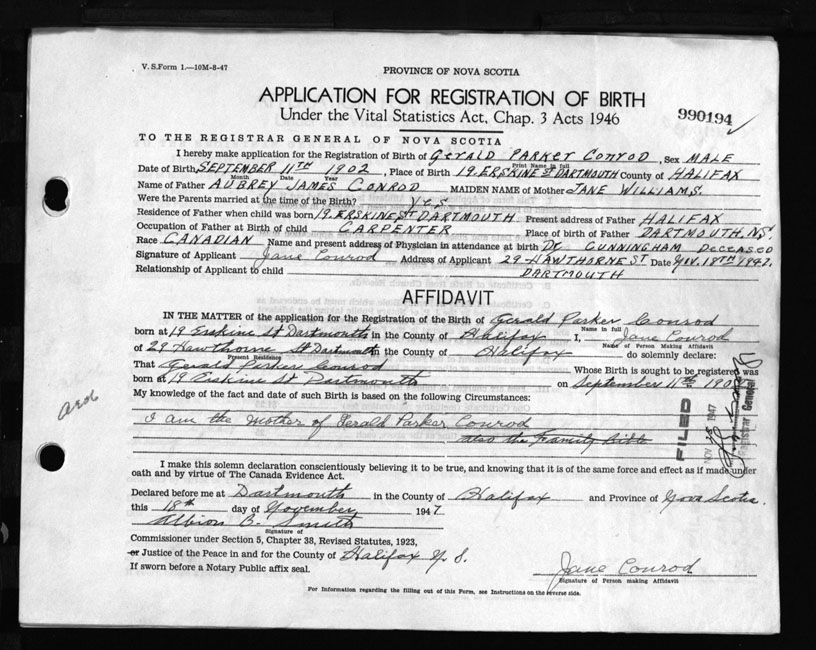 V. S. Form 1.—10M-8-47
PROVINCE OF NOVA SCOTIA
APPLICATION FOR REGISTRATION OF BIRTH
Under the Vital Statistics Act, Chap. 3 Acts 1946
990194
TO THE REGISTRAR GENERAL OF NOVA SCOTIA
I hereby make application for the Registration of Birth of GERALD PARKER CONROD, Sex MALE
Print Name in full
Date of Birth, SEPTEMBER 11TH 1902, Place of Birth 19. ERSKINE ST DARTMOUTH County of HALIFAX
Month Date Year
Name of Father AUBREY JAMES CONROD MAIDEN NAME of Mother JANE WILLIAMS.
Were the Parents married at the time of the Birth? yes
Residence of Father when child was born 19. ERSKINE, ST DARTMOUTH Present address of Father HALIFAX
Occupation of Father at Birth of child CARPENTER Place of birth of Father DARTMOUTH, N.S.
Race CANADIAN Name and present address of Physician in attendance at birth Dr CUNNINGHAM DECEASED
Signature of Applicant Jane Conrod Address of Applicant 29 HAWTHORNE ST Date Nov. 18TH
Relationship of Applicant to child DARTMOUTH
AFFIDAVIT
IN THE MATTER of the application for the Registration of the Birth of Gerald Parker Conrod
Name in full
born at 19 Erskine St Dartmouth in the County of Halifax I, Jane Conrod
Name of Person Making Affidavit
of 29 Hawthorne St Dartmouth in the County of Halifax do solemnly declare:
Present Residence
That Gerald Parker Conrod Whose Birth is sought to be registered was
born at 19 Erskine St Dartmouth on September 11th 1902
My knowledge of the fact and date of such Birth is based on the following Circumstances:
I am the mother of Gerald Parker Conrod
also the Family Bible
FILED
NOV 1947
Registrar General
I make this solemn declaration conscientiously believing it to be true, and knowing that it is of the same force and effect as if made under
oath and by virtue of The Canada Evidence Act.
Declared before me at Dartmouth in the County of Halifax and Province of Nova Scotia.
this 18th day of November 1947
Albion B. Smith
Signature of
Commissioner under Section 5, Chapter 38, Revised Statutes, 1923,
or Justice of the Peace in and for the County of Halifax N. S.
If sworn before a Notary Public affix seal.
Jane Conrod
Signature of Person making Affidavit
For Information regarding the filling out of this Form, see Instructions on the reverse side.